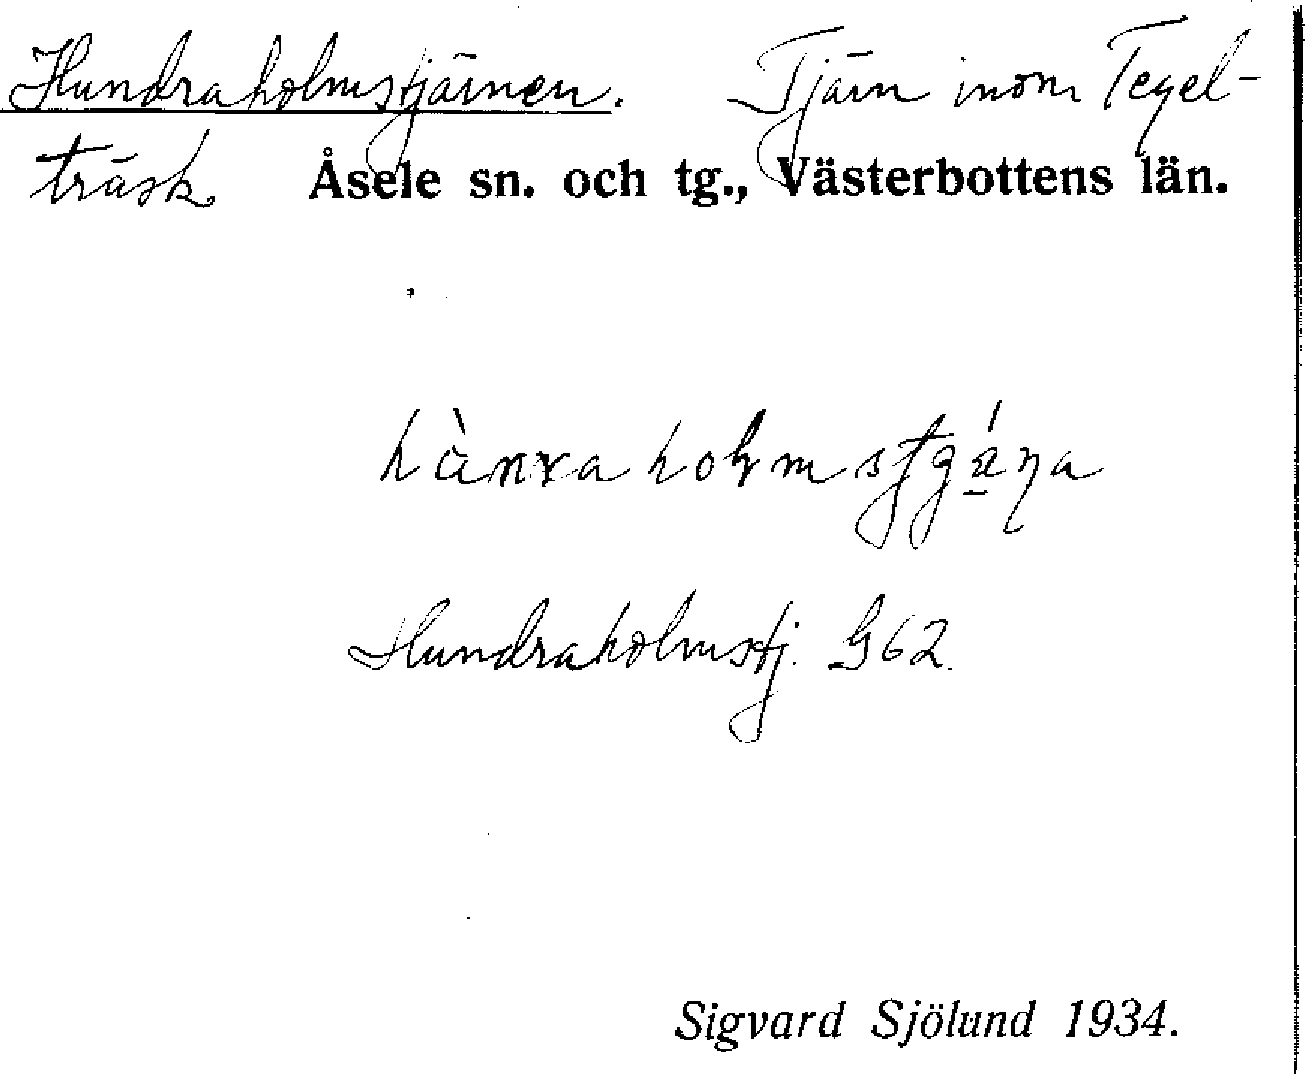 Hundraholmstjärnen. Tjärn inom Tegel-
träsk. Åsele sn. och tg., Västerbottens län.
Hundraholmstj. G62.
Sigvard Sjölund 1934.